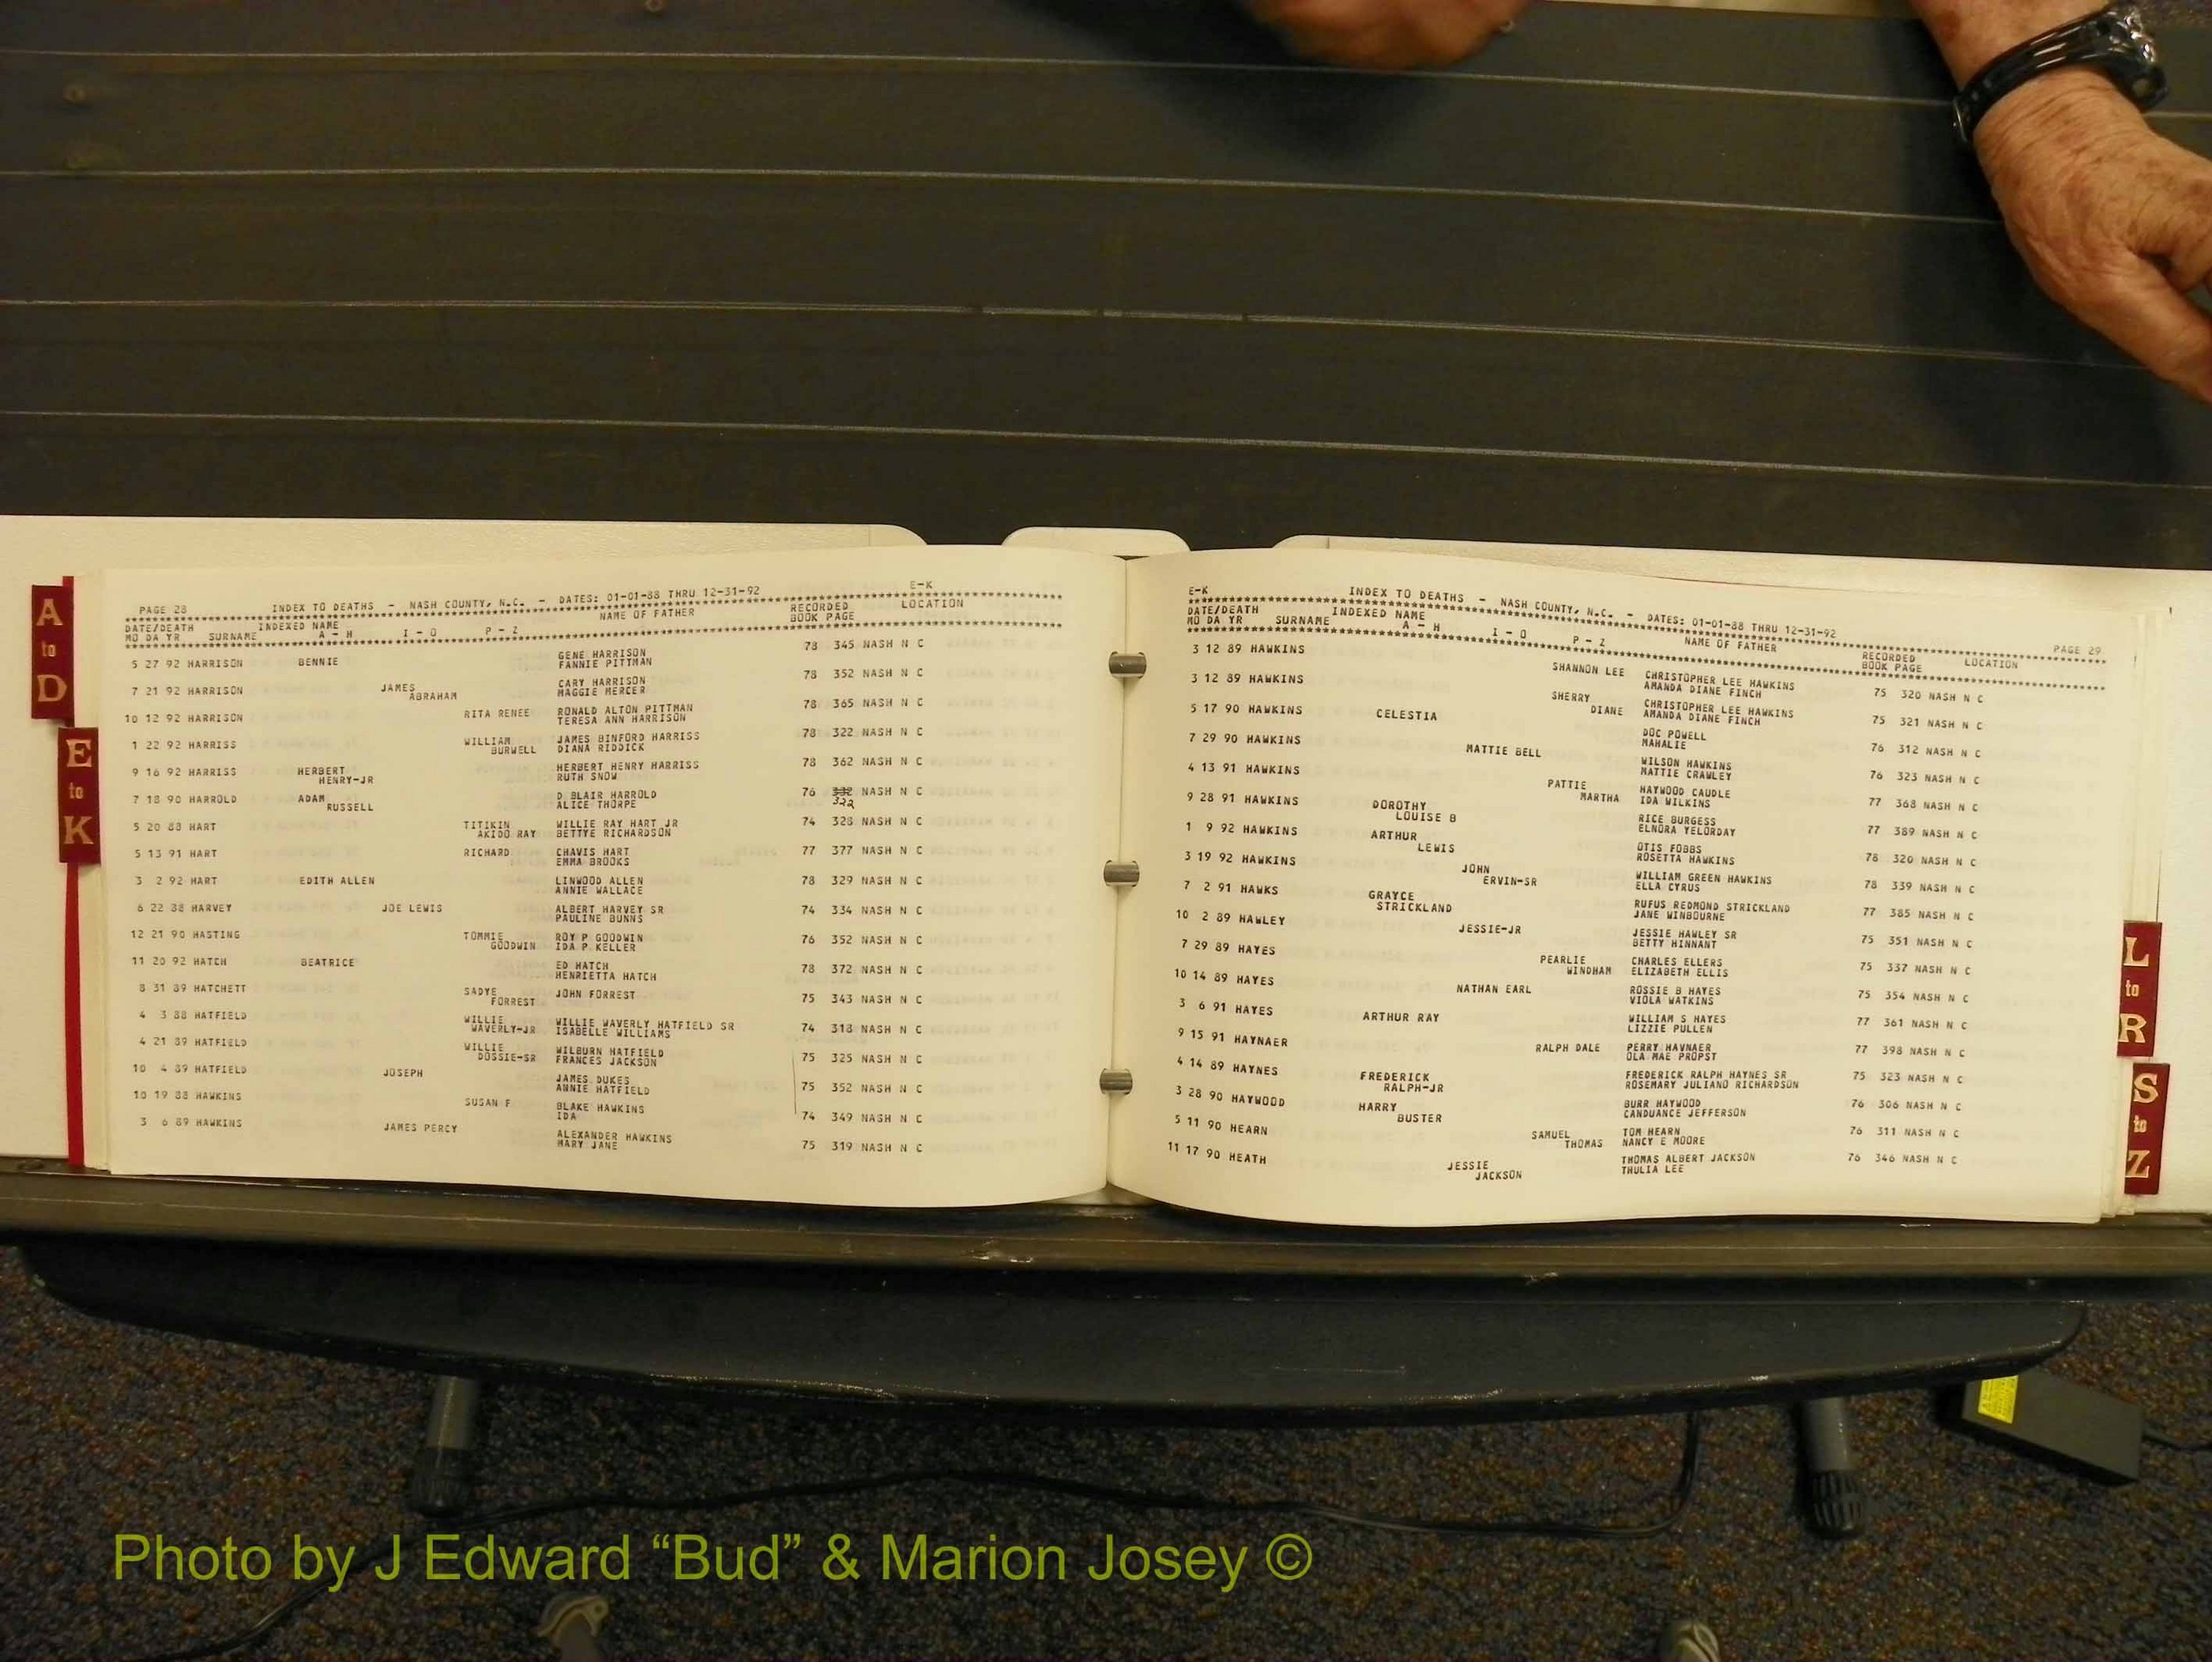 A
to
D
E
to
K
PAGE 28 INDEX TO DEATHS - NASH COUNTY, N.C. - DATES: 01-01-88 THRU 12-31-92 E-K
DATE/DEATH INDEXED NAME NAME OF FATHER RECORDED LOCATION
MO DA YR SURNAME A - H I - O P - Z BOOK PAGE
5 27 92 HARRISON BENNIE GENE HARRISON 78 345 NASH N C
FANNIE PITTMAN
7 21 92 HARRISON JAMES CARY HARRISON 78 352 NASH N C
ABRAHAM MAGGIE MERCER
10 12 92 HARRISON RITA RENEE RONALD ALTON PITTMAN 78 365 NASH N C
TERESA ANN HARRISON
1 22 92 HARRISS WILLIAM JAMES BINFORD HARRISS 78 322 NASH N C
BURWELL DIANA RIDDICK
9 16 92 HARRISS HERBERT HERBERT HENRY HARRISS 78 362 NASH N C
HENRY-JR RUTH SNOW
7 18 90 HARROLD ADAM D BLAIR HARROLD 76 332 NASH N C
RUSSELL ALICE THORPE 322
5 20 88 HART TITIKIN WILLIE RAY HART JR 74 328 NASH N C
AKIDO RAY BETTYE RICHARDSON
5 13 91 HART RICHARD CHAVIS HART 77 377 NASH N C
EMMA BROOKS
3 2 92 HART EDITH ALLEN LINWOOD ALLEN 78 329 NASH N C
ANNIE WALLACE
6 22 88 HARVEY JOE LEWIS ALBERT HARVEY SR 74 334 NASH N C
PAULINE BUNNS
12 21 90 HASTING TOMMIE ROY P GOODWIN 76 352 NASH N C
GOODWIN IDA P KELLER
11 20 92 HATCH BEATRICE ED HATCH 78 372 NASH N C
HENRIETTA HATCH
8 31 89 HATCHETT SADYE JOHN FORREST 75 343 NASH N C
FORREST
4 3 88 HATFIELD WILLIE WILLIE WAVERLY HATFIELD SR 74 318 NASH N C
WAVERLY-JR ISABELLE WILLIAMS
4 21 89 HATFIELD WILLIE WILBURN HATFIELD 75 325 NASH N C
DOSSIE-SR FRANCES JACKSON
10 4 89 HATFIELD JOSEPH JAMES DUKES 75 352 NASH N C
ANNIE HATFIELD
10 19 88 HAWKINS SUSAN F BLAKE HAWKINS 74 349 NASH N C
IDA
3 6 89 HAWKINS JAMES PERCY ALEXANDER HAWKINS 75 319 NASH N C
MARY JANE
E-K INDEX TO DEATHS - NASH COUNTY, N.C. - DATES: 01-01-88 THRU 12-31-92 PAGE 29
DATE/DEATH INDEXED NAME NAME OF FATHER RECORDED LOCATION
MO DA YR SURNAME A - H I - O P - Z BOOK PAGE
3 12 89 HAWKINS SHANNON LEE CHRISTOPHER LEE HAWKINS 75 320 NASH N C
AMANDA DIANE FINCH
3 12 89 HAWKINS SHERRY CHRISTOPHER LEE HAWKINS 75 321 NASH N C
DIANE AMANDA DIANE FINCH
5 17 90 HAWKINS CELESTIA DOC POWELL 76 312 NASH N C
MAHALIE
7 29 90 HAWKINS MATTIE BELL WILSON HAWKINS 76 323 NASH N C
MATTIE CRAWLEY
4 13 91 HAWKINS PATTIE HAYWOOD CAUDLE 77 368 NASH N C
MARTHA IDA WILKINS
9 28 91 HAWKINS DOROTHY RICE BURGESS 77 389 NASH N C
LOUISE B ELNORA YELORDAY
1 9 92 HAWKINS ARTHUR OTIS FOBBS 78 320 NASH N C
LEWIS ROSETTA HAWKINS
3 19 92 HAWKINS JOHN WILLIAM GREEN HAWKINS 78 339 NASH N C
ERVIN-SR ELLA CYRUS
7 2 91 HAWKS GRAYCE RUFUS REDMOND STRICKLAND 77 385 NASH N C
STRICKLAND JANE WINBOURNE
10 2 89 HAWLEY JESSIE-JR JESSIE HAWLEY SR 75 351 NASH N C
BETTY HINNANT
7 29 89 HAYES PEARLIE CHARLES ELLERS 75 337 NASH N C
WINDHAM ELIZABETH ELLIS
10 14 89 HAYES NATHAN EARL ROSSIE B HAYES 75 354 NASH N C
VIOLA WATKINS
3 6 91 HAYES ARTHUR RAY WILLIAM S HAYES 77 361 NASH N C
LIZZIE PULLEN
9 15 91 HAYNAER RALPH DALE PERRY HAVNAER 77 398 NASH N C
OLA MAE PROPST
4 14 89 HAYNES FREDERICK FREDERICK RALPH HAYNES SR 75 323 NASH N C
RALPH-JR ROSEMARY JULIANO RICHARDSON
3 28 90 HAYWOOD HARRY BURR HAYWOOD 76 306 NASH N C
BUSTER CANDUANCE JEFFERSON
5 11 90 HEARN SAMUEL TOM HEARN 76 311 NASH N C
THOMAS NANCY E MOORE
11 17 90 HEATH JESSIE THOMAS ALBERT JACKSON 76 346 NASH N C
JACKSON THULIA LEE
L
to
R
S
to
Z
Photo by J Edward “Bud” & Marion Josey ©